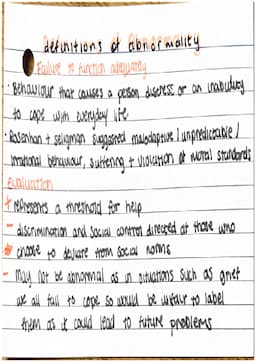 definitions of abnormality
Failure to function adequately
· Behaviour that causes a person distress or an inability
to cope with everyday life
· Rosenhan + seligman suggested maladaptive / unpredictable /
irrational behaviour, suffering + violation of moral standards
Evaluation
+ represents a threshold for help
- discrimination and social control directed at those who
choose to deviate from social norms
- may not be abnormal as in situations such as grief
we all fail to cope so would be unfair to label
them as it could lead to future problems